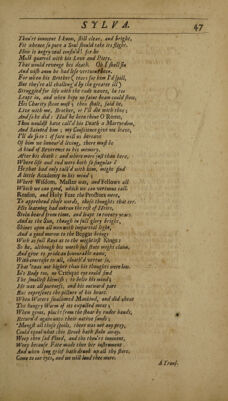 SYLVA. 47
Thou'rt innocent I know, still clear, and bright,
Fit whence so pure a Soul should take its flight.
How is angry zeal confin'd! for he
Must quarrel with his Love and Piety.
He would revenge his death. Oh I shall sin
And wish anon he had less vertuous been.
For when his Brother ( tears for him I'd spill,
But they're all challeng'd by the greater ill )
Struggled for life with the rude waves, he too
Leapt in, and when hope no faint beam could show,
His Charity shone most; thou shalt, said he,
Live with me, Brother, or I'll die with thee;
And so he did: Had he been thine O Rome,
Thou wouldst have call'd his Death a Martyrdom,
And Sainted him; my Conscience give me leave,
I'll do so too: if fate will us bereave
Of him we honour'd living, there must be
A kind of Reverence to his memory,
After his death: and where more just than here,
Where life and end were both so singular?
He that had only talk'd with him, might find
A little Academy in his mind;
Where Wisdom, Master was, and Fellows all
Which we can good, which we can vertuous call.
Reason, and Holy Fear the Proctors were,
To apprehend those words, those thoughts that err.
His learning had outrun the rest of Heirs,
Stoln beard from time, and leapt to twenty years.
And as the Sun, though in full glory bright,
Shines upon all men with impartial light,
And a good morrow to the Beggar brings
With as full Rays as to the mightiest Kings:
So he, although his worth just state might claim,
And give to pride an honourable name,
With courtesie to all, cloath'd vertue so,
That 'twas not higher than his thoughts were low.
In's Body too, no Critique eye could find
The smallest blemish, to belye his mind;
He was all pureness, and his outward part
But represents the picture of his heart.
When Waters swallowed Mankind, and did cheat
The hungry Worm of its expected meat;
When gems, pluckt from the shoar by ruder hands,
Return'd again unto their native sands;
'Mongst all those spoils, there was not any prey,
Could equal what this Brook hath stoln away.
Weep then sad Flood, and tho thou'rt innocent,
Weep because Fate made thee her instrument.
And when long grief hath drunk up all thy store,
Come to our eyes, and we will lend thee more.
A Transl-